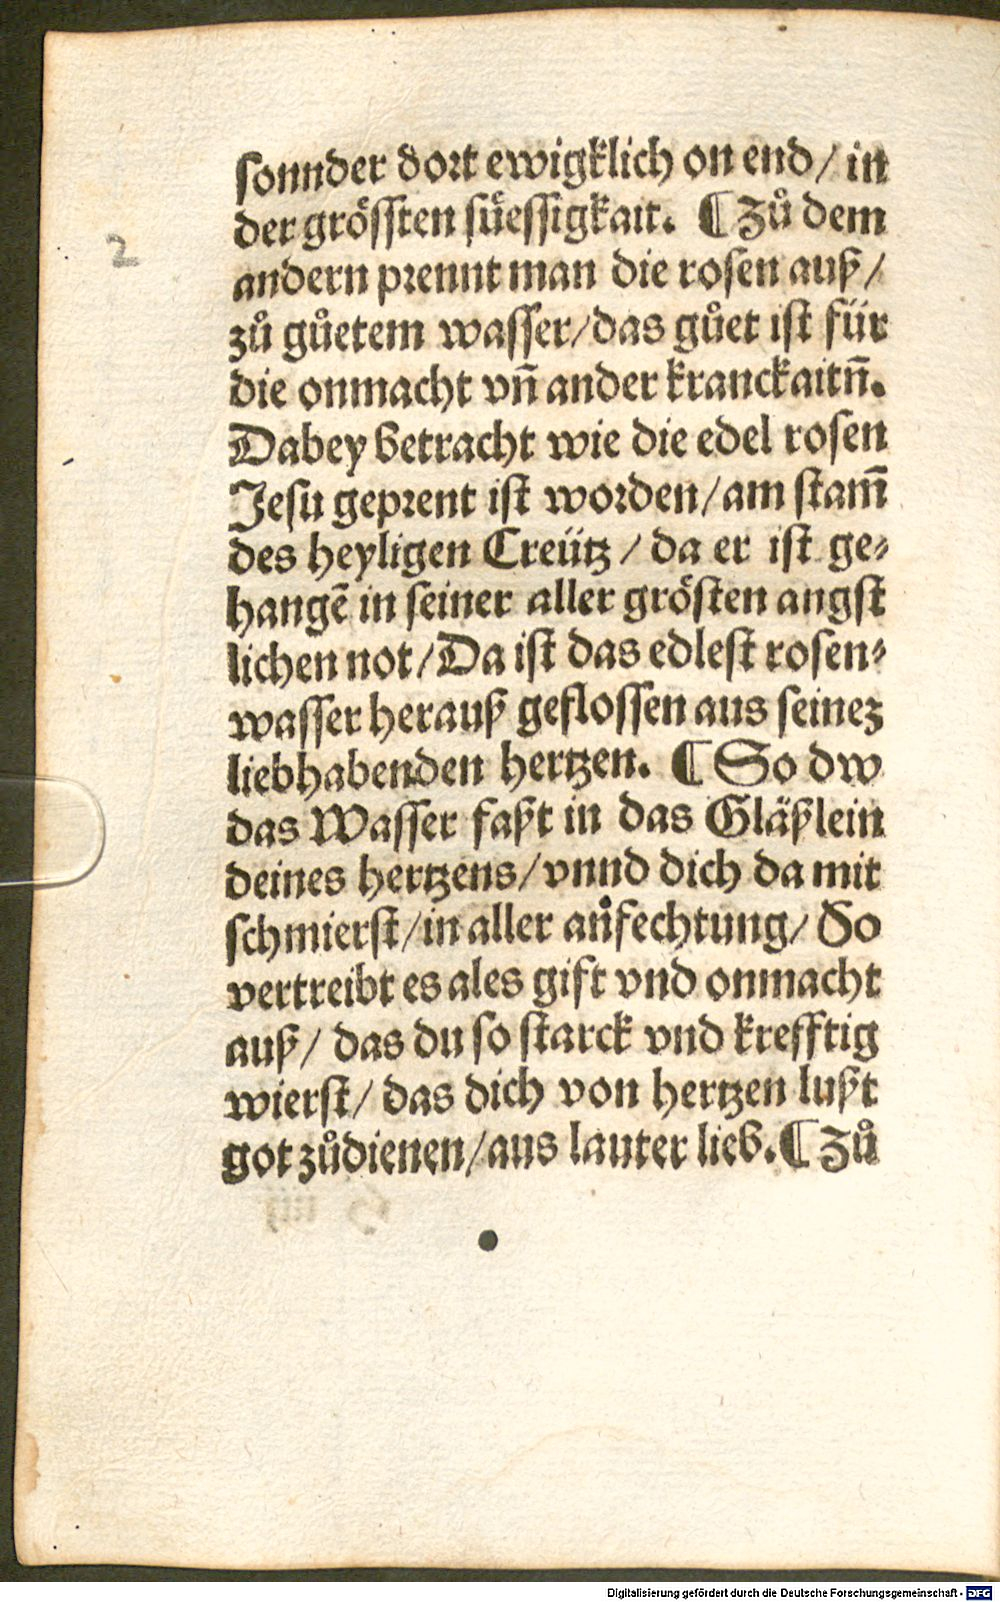 sonnder dort ewigklich on end/ in
der grössten süessigkait. ¶ Zů dem
andern prennt man die rosen auß/
zů gůetem wasser/das gůet ist für
die onmacht vn̄ ander kranckaitn̄.
Dabey betracht wie die edel rosen
Jesu geprent ist worden/am stam̄
des heyligen Creütz / da er ist ge-
hangē in seiner aller grösten angst
lichen not/Da ist das edlest rosen-
wasser herauß geflossen aus seinez
liebhabenden hertzen. ¶ So dw
das Wasser faßt in das Gläßlein
deines hertzens/vnnd dich da mit
schmierst/in aller anfechtung/ So
vertreibt es ales gift vnd onmacht
auß/ das du so starck vnd krefftig
wierst/ das dich von hertzen lußt
got zůdienen/aus lauter lieb.¶ Zů
2
Digitalisierung gefördert durch die Deutsche Forschungsgemeinschaft - DFG